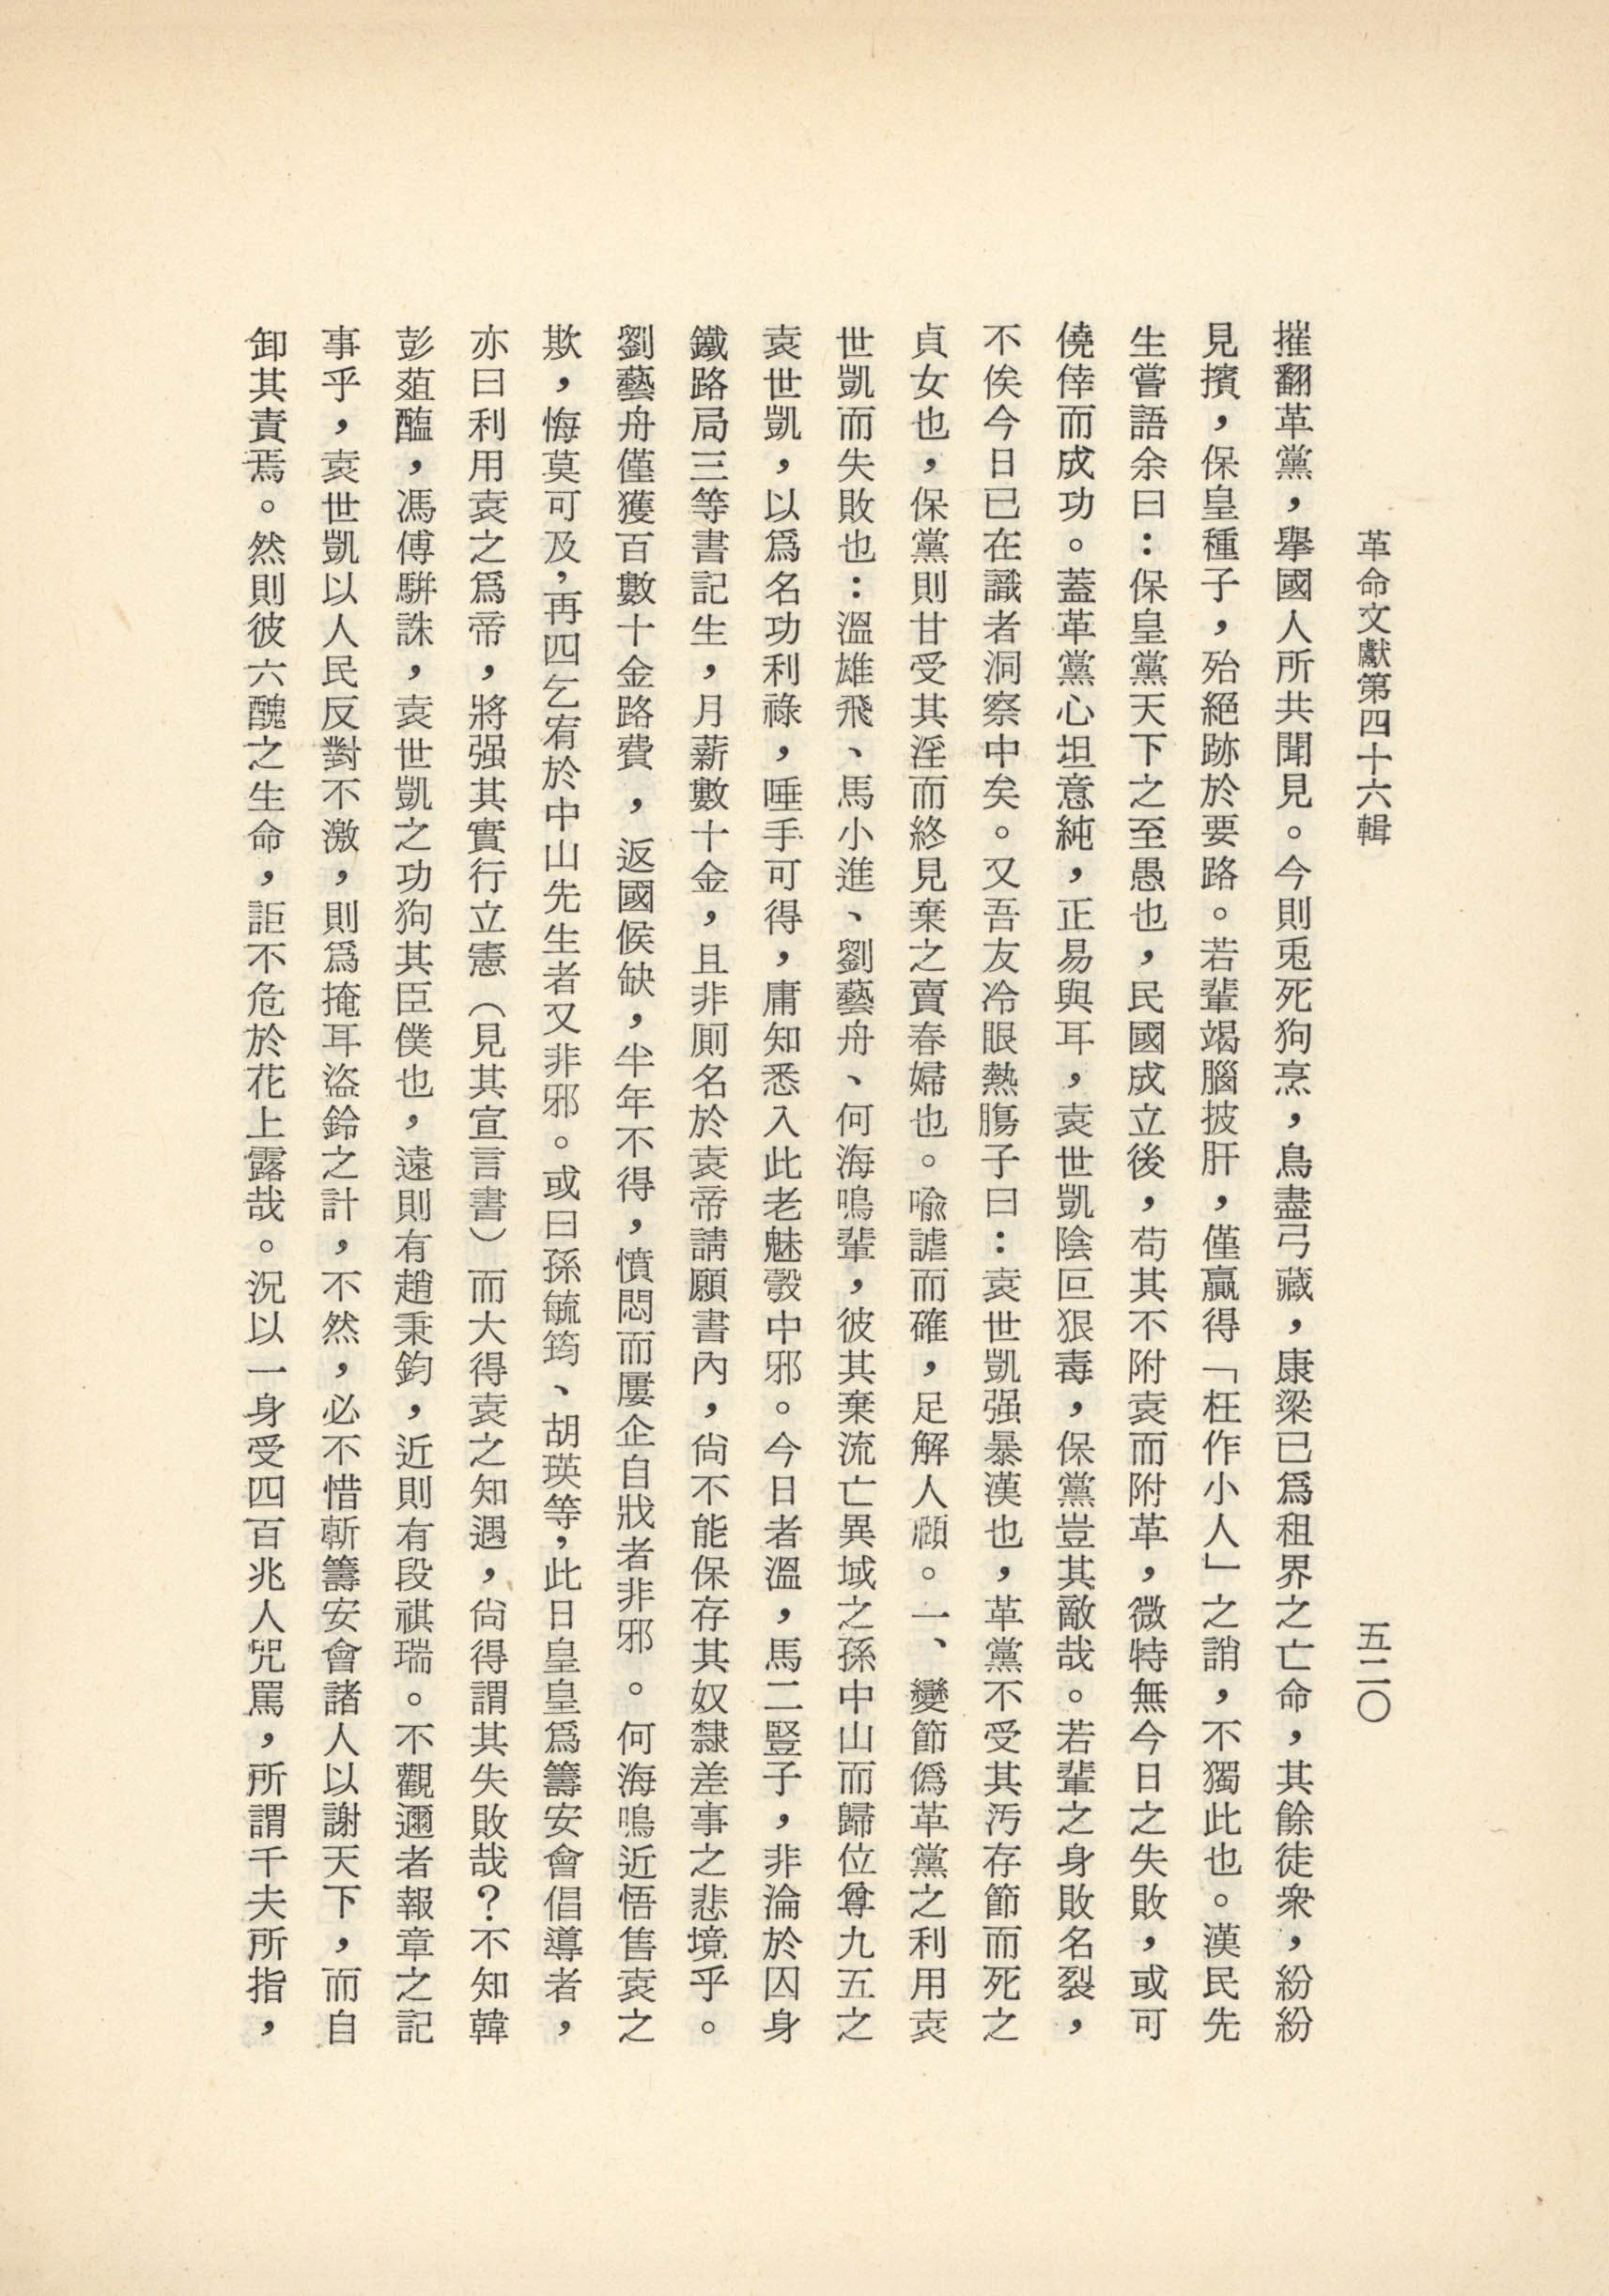 革命文獻第四十六輯
五二〇
摧翻革黨，舉國人所共聞見。今則兎死狗烹，鳥盡弓藏，康梁已爲租界之亡命，其餘徒衆，紛紛
見擯，保皇種子，殆絕跡於要路。若輩竭腦披肝，僅贏得「枉作小人」之誚，不獨此也。漢民先
生嘗語余曰：保皇黨天下之至愚也，民國成立後，苟其不附袁而附革，微特無今日之失敗，或可
僥倖而成功。蓋革黨心坦意純，正易與耳，袁世凱陰叵狠毒，保黨豈其敵哉。若輩之身敗名裂，
不俟今日已在識者洞察中矣。又吾友冷眼熱膓子曰：袁世凱强暴漢也，革黨不受其汚存節而死之
貞女也，保黨則甘受其淫而終見棄之賣春婦也。喩謔而確，足解人頤。一、變節僞革黨之利用袁
世凱而失敗也：溫雄飛、馬小進、劉藝舟、何海鳴輩，彼其棄流亡異域之孫中山而歸位尊九五之
袁世凱，以爲名功利祿，唾手可得，庸知悉入此老魅彀中邪。今日者溫，馬二豎子，非淪於囚身
鐵路局三等書記生，月薪數十金，且非厠名於袁帝請願書內，尙不能保存其奴隸差事之悲境乎。
劉藝舟僅獲百數十金路費，返國候缺，半年不得，憤悶而屢企自戕者非邪。何海鳴近悟售袁之
欺，悔莫可及，再四乞宥於中山先生者又非邪。或曰孫毓筠、胡瑛等，此日皇皇爲籌安會倡導者，
亦曰利用袁之爲帝，將强其實行立憲（見其宣言書）而大得袁之知遇，尙得謂其失敗哉？不知韓
彭葅醢，馮傅騈誅，袁世凱之功狗其臣僕也，遠則有趙秉鈞，近則有段祺瑞。不觀邇者報章之記
事乎，袁世凱以人民反對不激，則爲掩耳盜鈴之計，不然，必不惜斬籌安會諸人以謝天下，而自
卸其責焉。然則彼六醜之生命，詎不危於花上露哉。況以一身受四百兆人咒罵，所謂千夫所指，